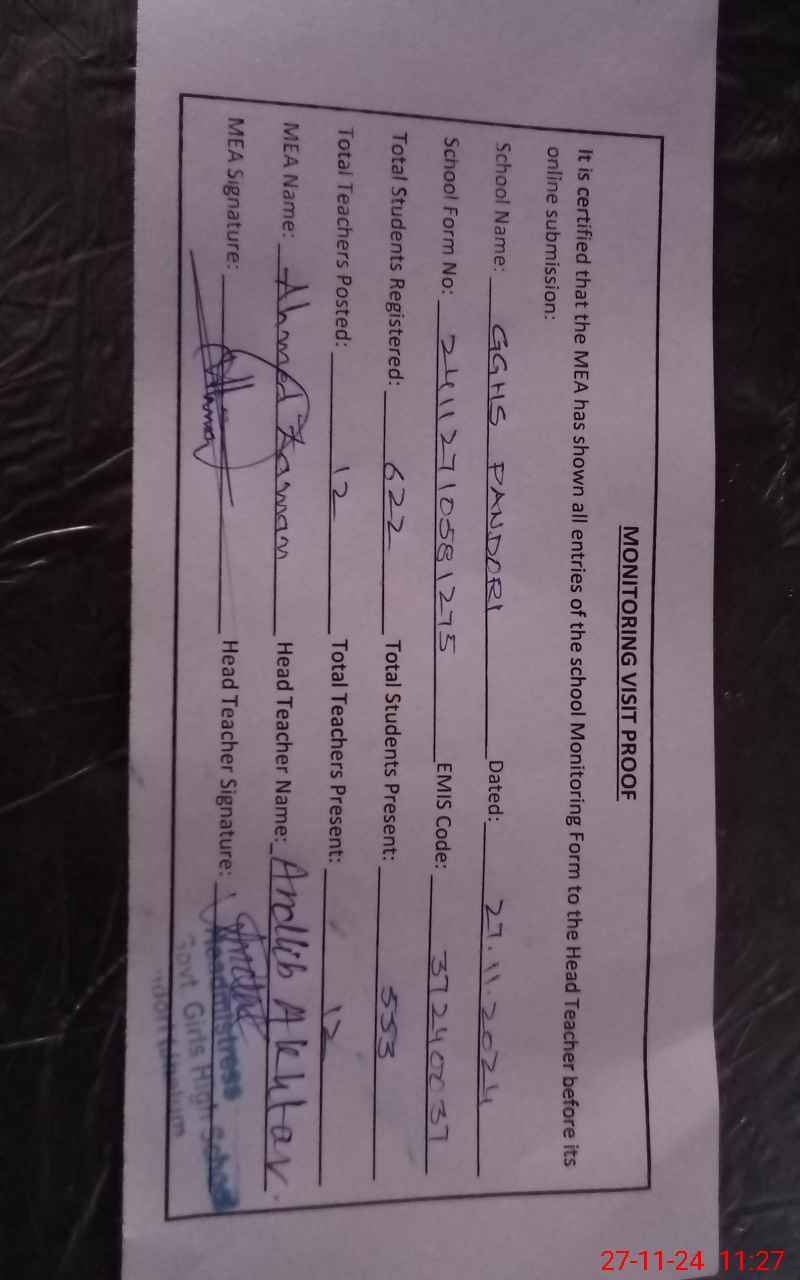 MONITORING VISIT PROOF
It is certified that the MEA has shown all entries of the school Monitoring Form to the Head Teacher before its
online submission:
School Name: GGHS PANDORI Dated: 27.11.2024
School Form No: 24112710581275 EMIS Code: 37240037
Total Students Registered: 622 Total Students Present: 553
Total Teachers Posted: 12 Total Teachers Present: 12
MEA Name: Ahmed Zaman Head Teacher Name: Andlib Akhtar.
MEA Signature: Head Teacher Signature:
Headmistress
Govt. Girls High School
27-11-24 11:27